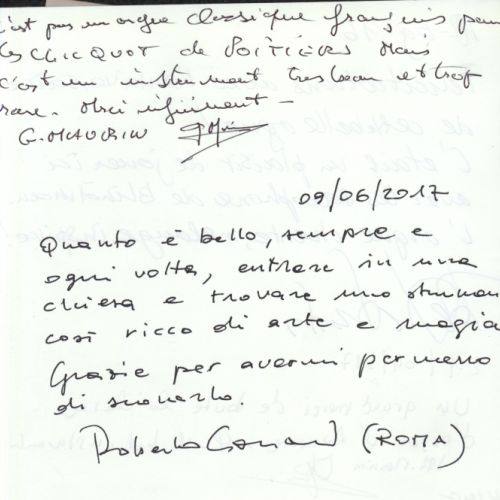 c'est pas un orgue classique français
les CLICQUOT de POITIERS Mais
c'est un instrument très beau et trop
rare. Merci infiniment -
G. MAUCRIN
09/06/2017
Quanto è bello, sempre e
ogni volta, entrare in una
chiesa e trovare uno strumen
così ricco di arte e magia
Grazie per avermi permesso
di suonarlo.
Roberto (ROMA)